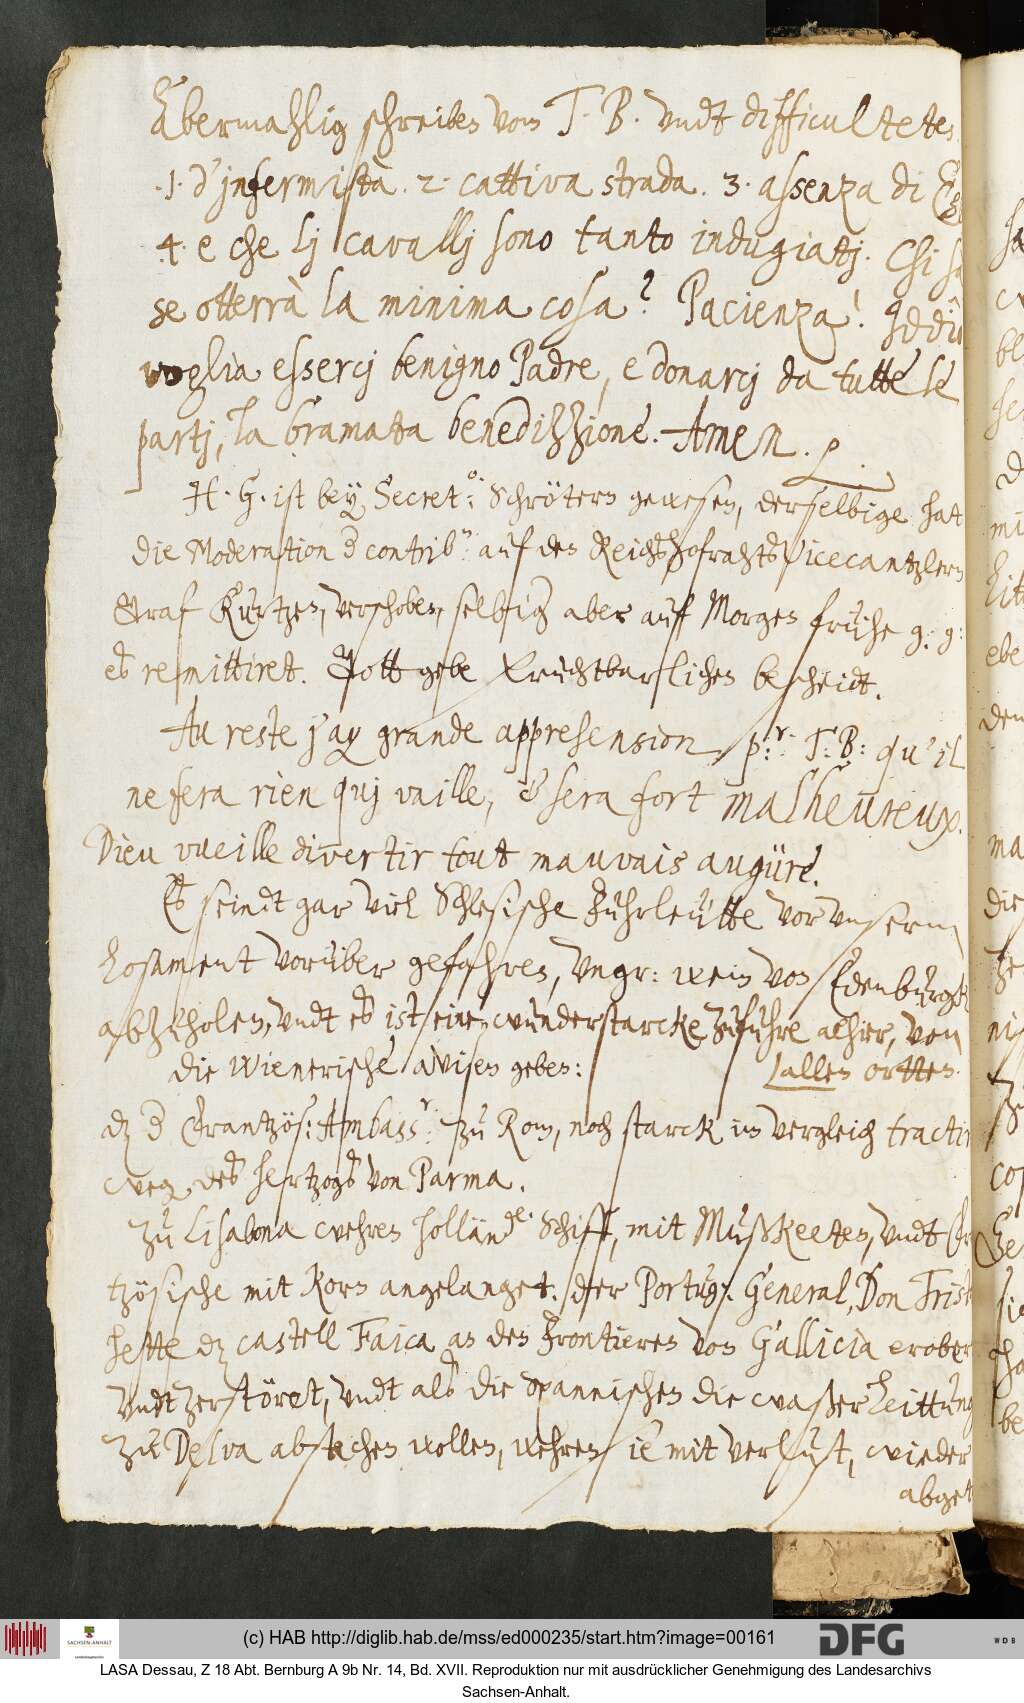 Abermahlig schreiben von T. B. vndt difficulteten
.1. d'jnfermità. 2. cattiva strada. 3. assenza di
4. e che lj cavallj sono tanto indugiatj. Chi sa
se otterrà la minima cosa? Pacienza! Iddio
voglia essercj benigno Padre, e donarcj da tutte le
partj, la bramata benedizzione. Amen. p.
H. G. ist bey Secret.o: Schrötern gewesen, derselbige hat
die Moderation d contrib.n: auf den Reichshofrahts Vicecantzlern
Graf Kurtzen, verschoben, selbig aber auf Morgen fruhe g. g:
es remittiret. Gott gebe fruchtbarlichen bescheidt.
Au reste j'ay grande apprehension, p:r: T: B: qu'il
ne fera rien quj vaille, & sera fort malheureux.
Dieu vueille divertir tout mauvais augüre.
Es seindt gar viel Schlesische Fuhrleutte vor vnserm
losament vorüber gefahren, vngr: wein von Edenburgk
abzuholen, vndt es ist eine wunderstarcke zufuhre alhier, von
allen ortten.
die Wienerische avisen geben:
dz d Frantzös: Ambass.r: zu Rom, noch starck im vergleich tractir
weg. des hertzogs von Parma.
Zu Lisabona wehren holländ.e: Schiff, mit Mußkeeten, vndt Fr
tzösische mit Korn angelanget. der Portug. General, Don Trist
hette dz castell Faica an den Frontieren von Gallicia erober
vndt zerstöret, vndt als die Spannischen die waßerleittung
zu Delva abstechen wollen, wehren sie mit verlust, wieder
abget
(c) HAB http://diglib.hab.de/mss/ed000235/start.htm?image=00161
SACHSEN-ANHALT
DFG
WDB
LASA Dessau, Z 18 Abt. Bernburg A 9b Nr. 14, Bd. XVII. Reproduktion nur mit ausdrücklicher Genehmigung des Landesarchivs
Sachsen-Anhalt.